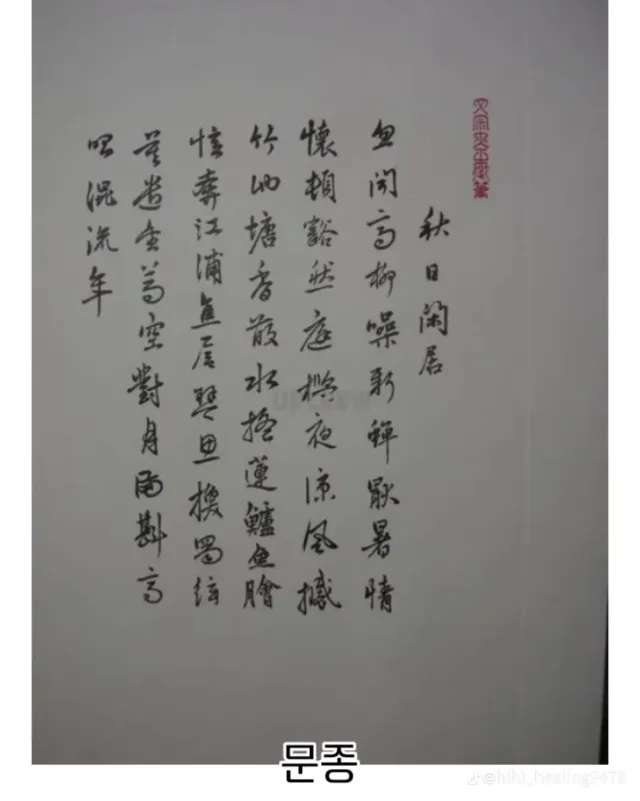 文宗大王御筆
秋日閑居
忽聞高柳噪新蟬厭暑情
懷頓豁然庭檻夜凉風撼
竹池塘香散水搖蓮鱸魚膾
憶奔江浦焦尾琴思換蜀絃
莫遣金尊空對月滿斟高
唱混流年
문종
@hihi_healing9478